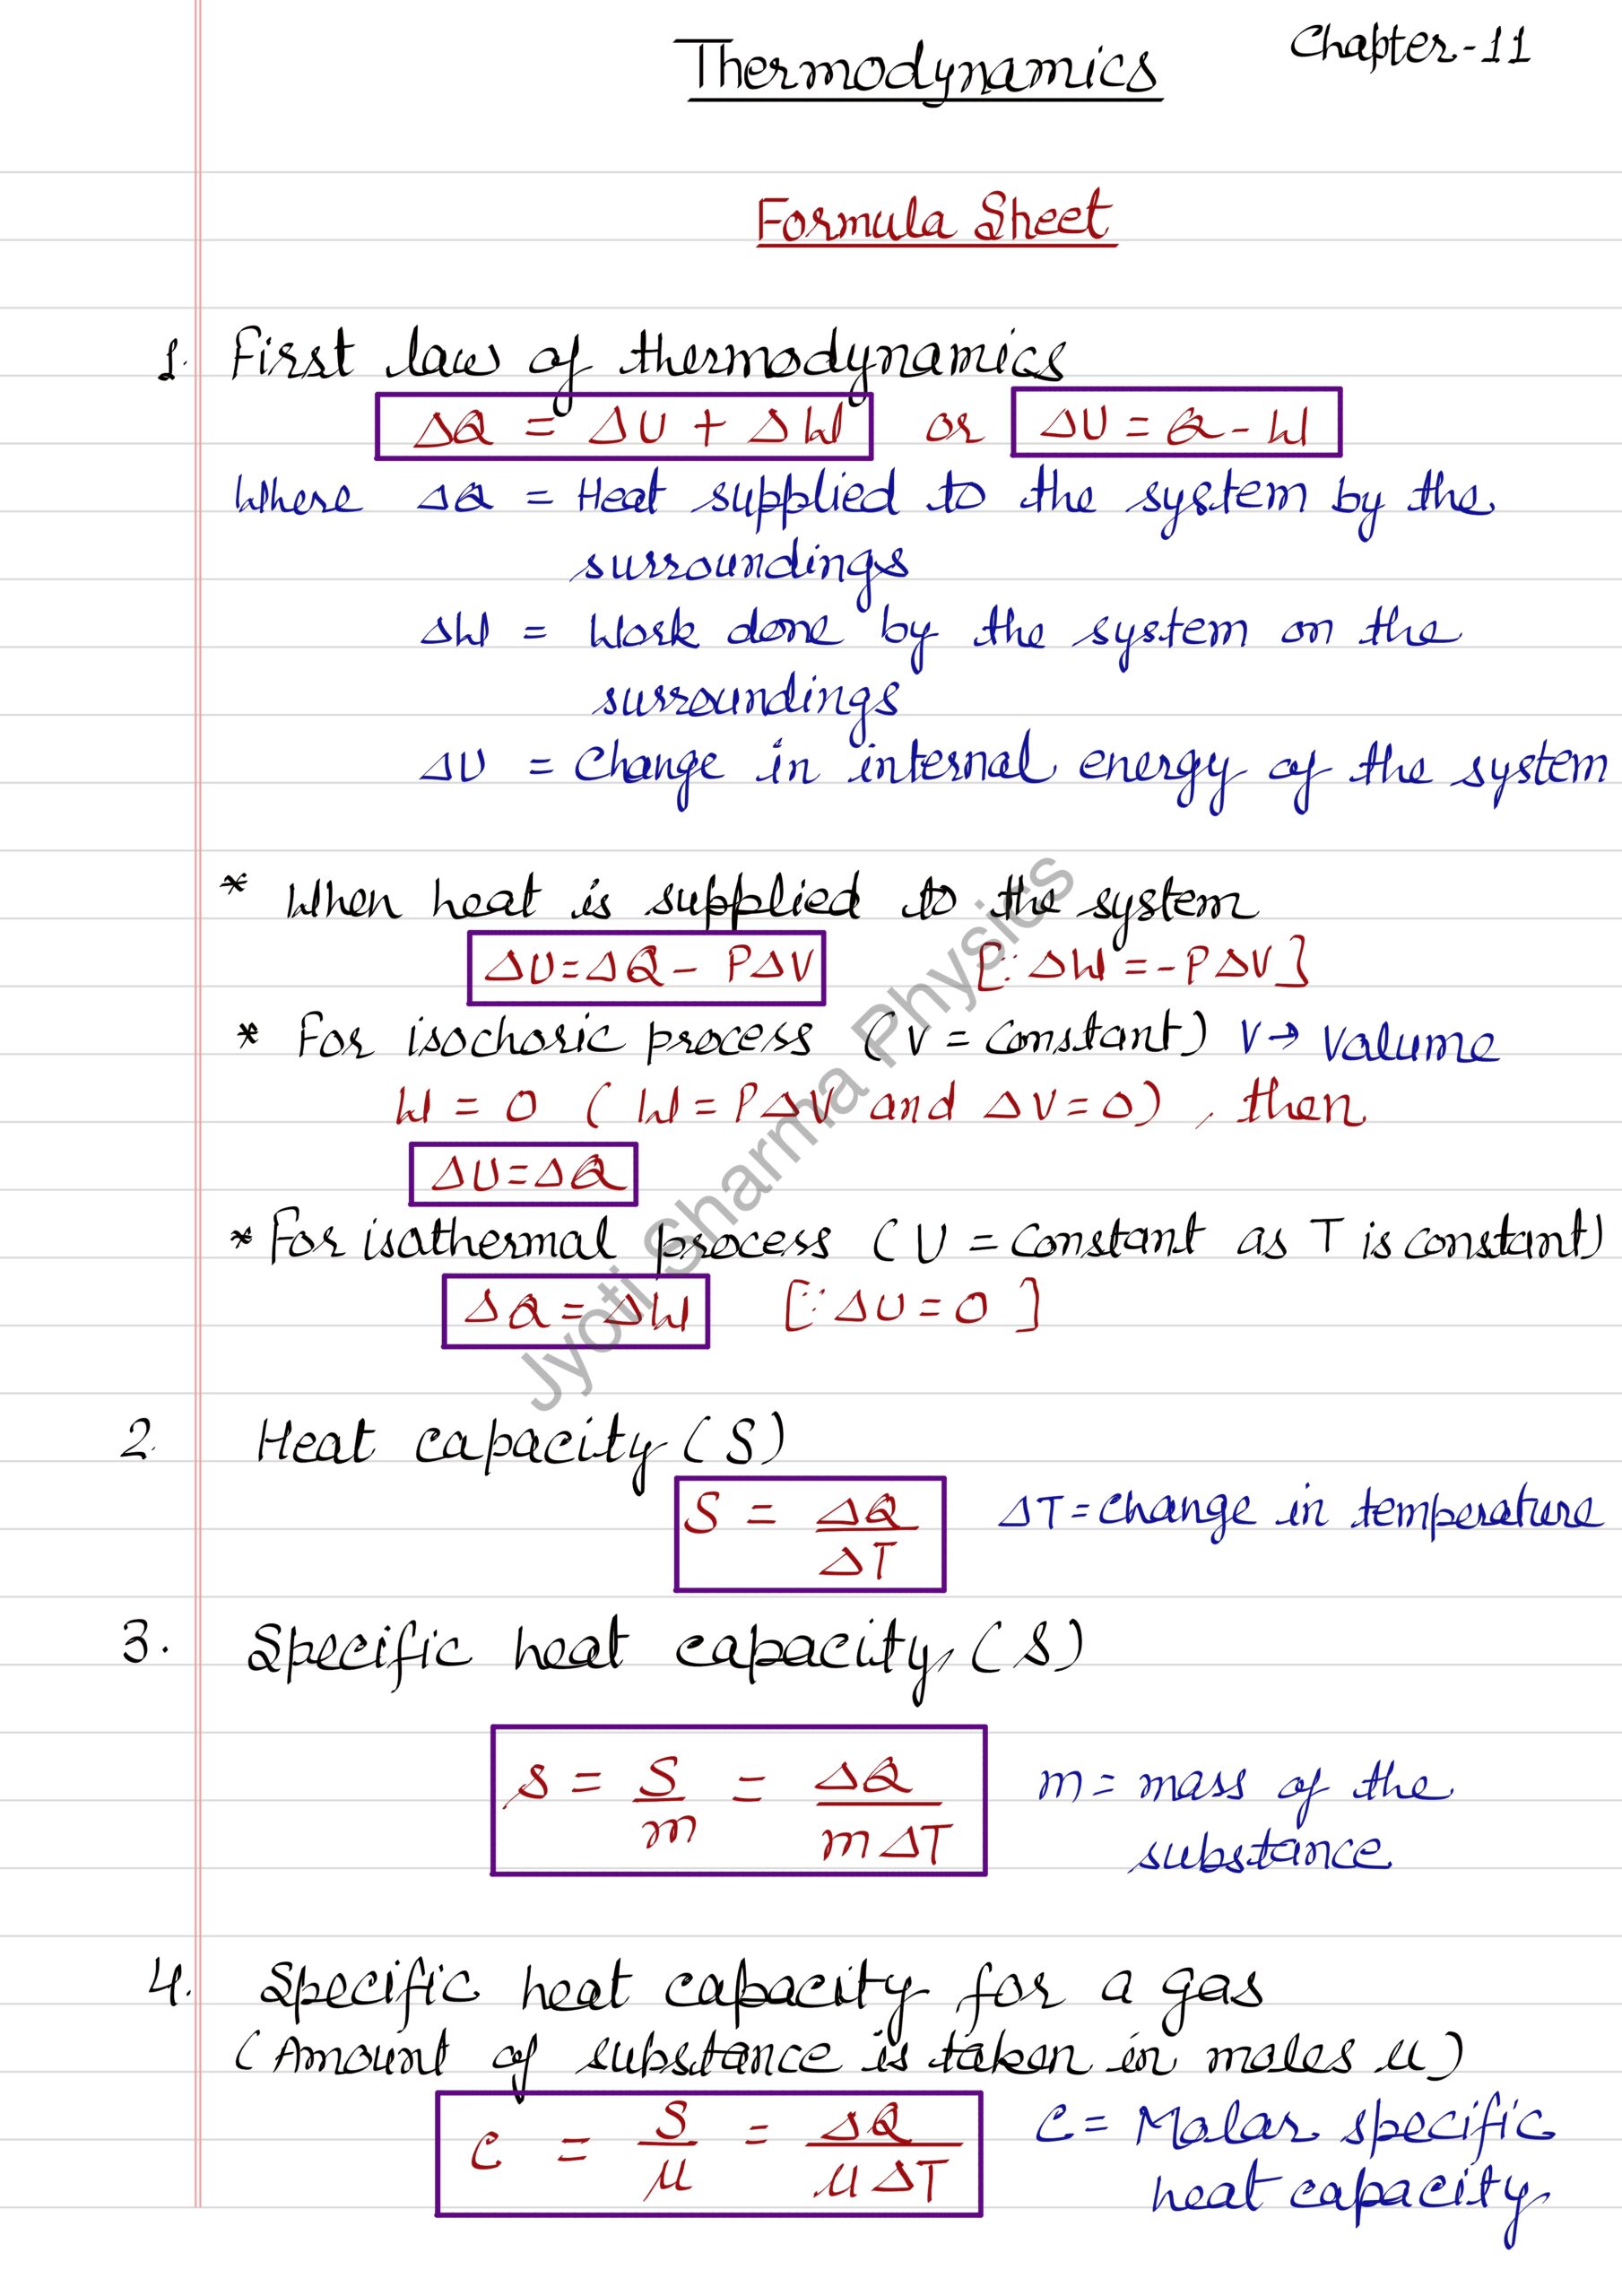 Thermodynamics Chapter-11
Formula Sheet
1. First law of thermodynamics
ΔQ = ΔU + ΔW or ΔU = Q - W
Where ΔQ = Heat supplied to the system by the
surroundings
ΔW = Work done by the system on the
surroundings
ΔU = Change in internal energy of the system
* When heat is supplied to the system
ΔU = ΔQ - PΔV [∵ ΔW = -PΔV]
* For isochoric process (V = Constant) V → Valume
W = 0 (W = PΔV and ΔV = 0), then
ΔU = ΔQ
* For isathermal process (U = Constant as T is constant)
ΔQ = ΔW [∵ ΔU = 0]
2. Heat capacity (S)
S = ΔQ/ΔT ΔT = change in temperature
3. Specific heat capacity, (s)
s = S/m = ΔQ/mΔT m = mass of the
substance
4. Specific heat capacity for a gas
(Amount of substance is taken in moles μ)
C = S/μ = ΔQ/μΔT C = Molar specific
heat capacity
Jyoti Sharma Physics